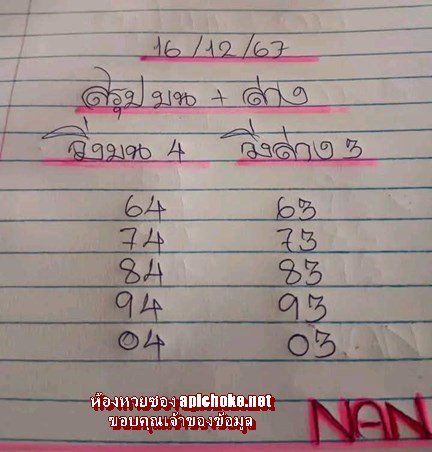 16/12/67
สรุป บน + ล่าง
วิ่งบน 4 วิ่งล่าง 3
64 63
74 73
84 83
94 93
04 03
ห้องหวยซอง apichoke.net
ขอบคุณเจ้าของข้อมูล
NAN